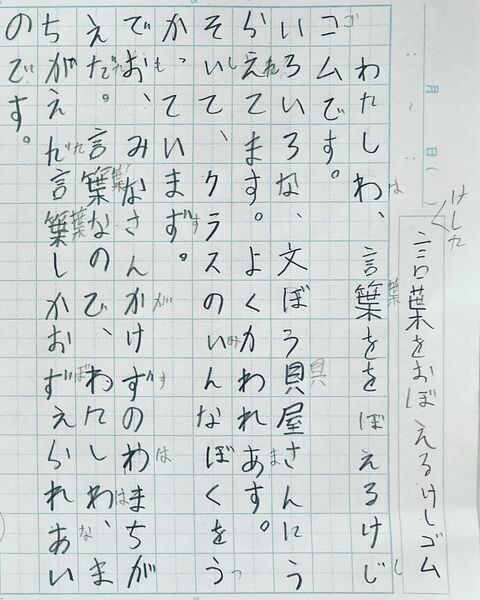 月 日( )
けした
言葉をおぼえるけしゴム
わたしわ、言葉ををぼえるけじ
コムです。
いろいろな、文ぼう貝屋さんにう
らえてます。よくかわれあす。
そいて、クラスのいんなぼくをう
か、ていまず。
でお、みなさんかけずのわまちが
えだ。言葉なのひ、わにしわ、ま
ちがえだ言葉しかおずえられあい
のです。